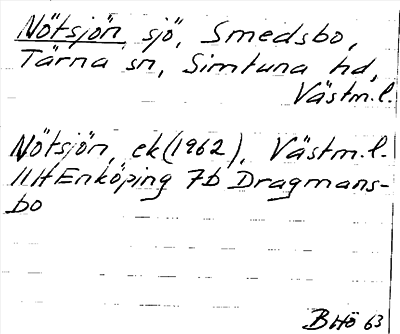 Nötsjön sjö, Smedsbo,
Tärna sn, Simtuna hd,
Västm.l.
Nötsjön, ek (1962), Västm.l.
11H Enköping 7b Dragmans-
bo
BHö 63